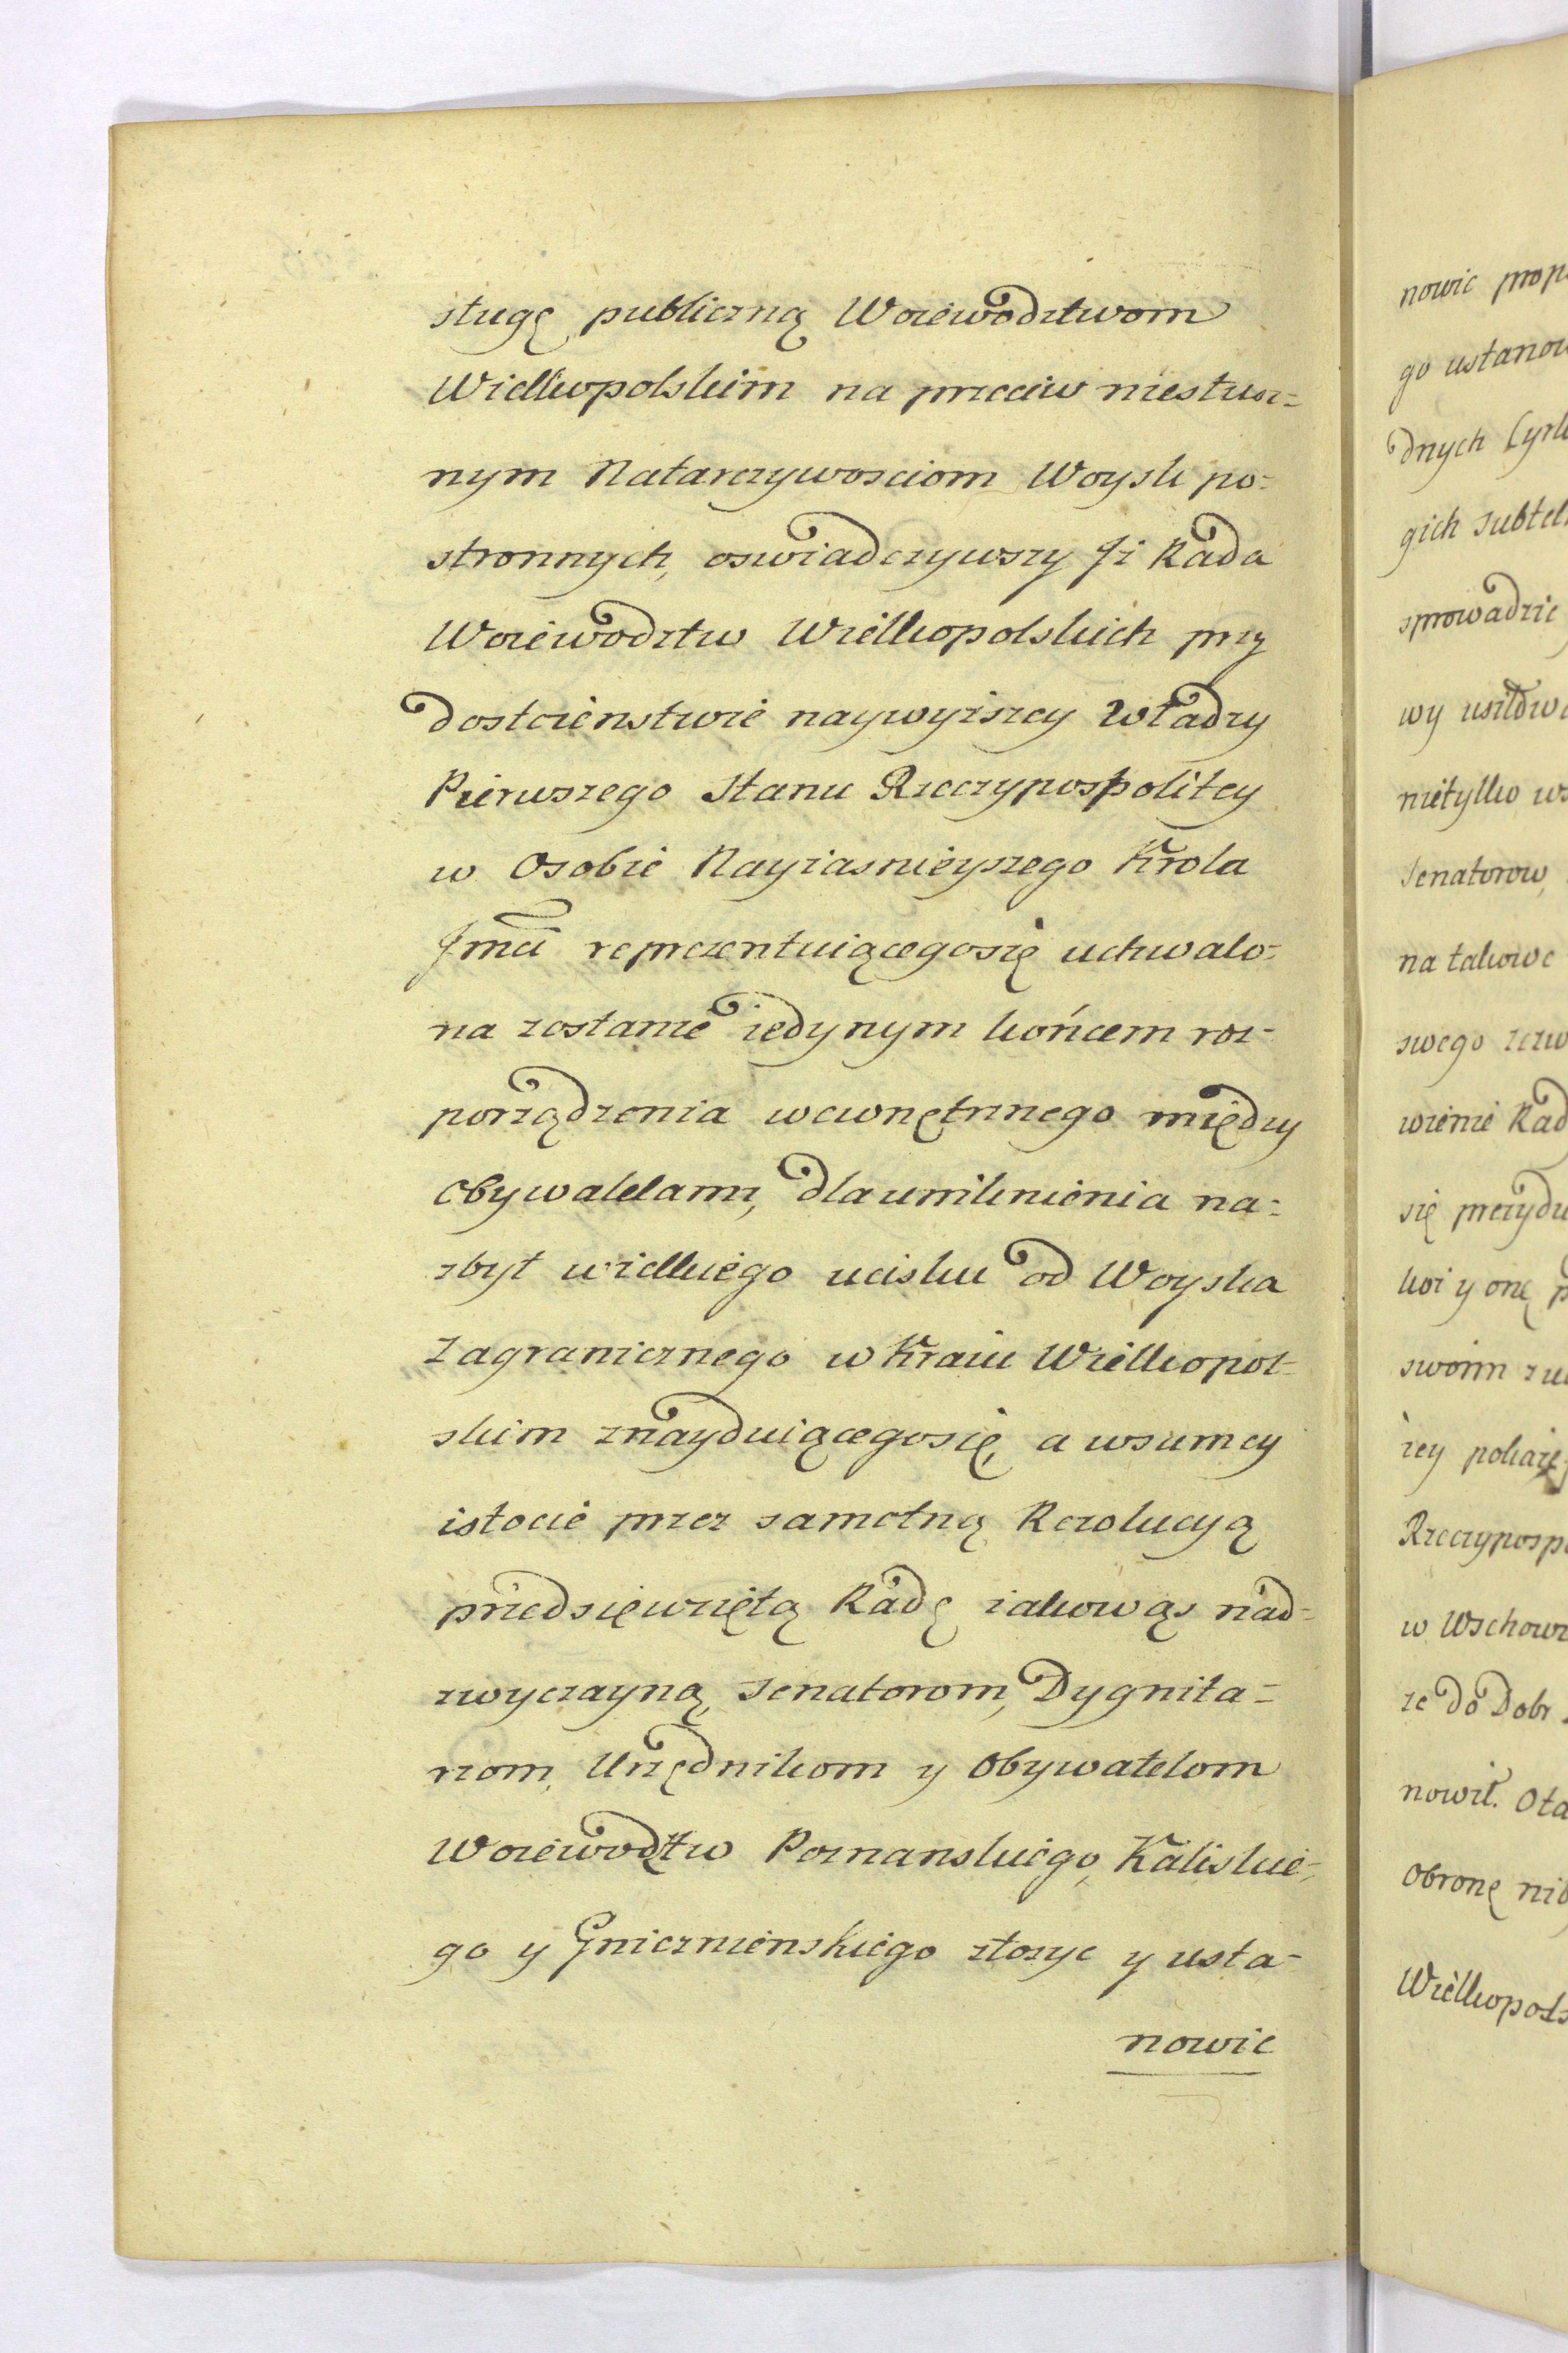 sługę publiczną Woiewodztwom
Wielkopolskim na przeciw niesłusz=
nym Natarczywosciom Woysk po=
stronnych, oswiadczywszy Jż Rada
Woiewodztw Wielkopolskich przy
dostoienstwie naywyższey Władzy
Pierwszego Stanu Rzeczypospolitey
w Osobie Nayiasnieyszego Krola
Jmci reprezentuiącegosię uchwalo=
na zostanie iedynym końcem roz=
porządzenia wewnętrznego między
Obywatelami, dla uniknienia na=
zbyt wielkiego ucisku od Woyska
Zagranicznego w Kraiu Wielkopol=
skim znayduiącegosię, a wsamey
istocie przez samotną Rezolucyą
przedsięwziętą Radę iakowąs nad=
zwyczayną, Senatorom, Dygnita=
rzom, Urzędnikom y Obywatelom
Woiewodztw Poznanskiego, Kaliskie=
go y Gnieznienskiego złozyc y usta=
nowic
nowic
go ustanow
dnych
gich subtel
sprowadzic
wy usiłow
nietylko ws
Senatorow,
na takowe
swego
wienie Rad
się prezydu
koi y onę p
swoim
zey pokaze
Rzeczyposp
w Wschow
ze do Dobr
nowił. Ota
Obronę
Wielkopols